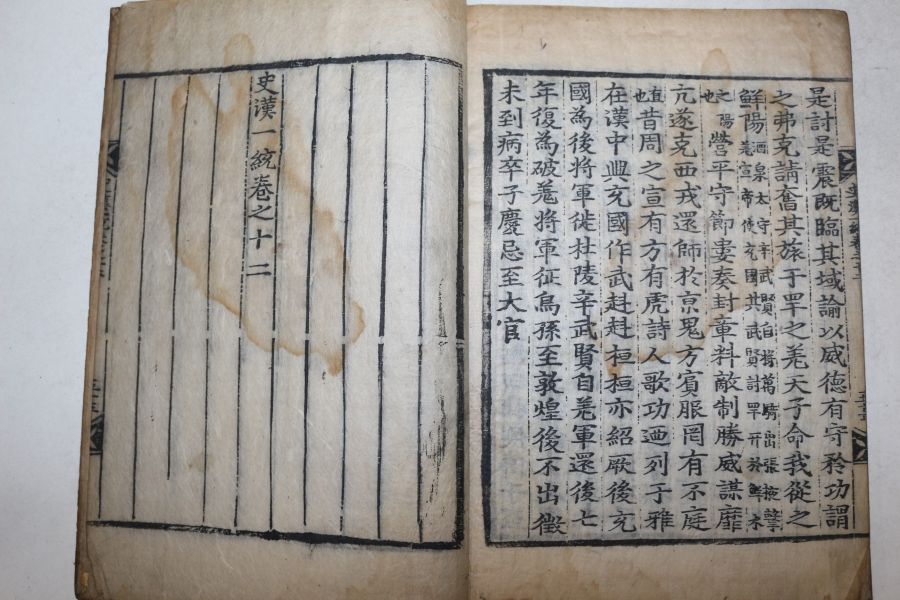 是討是震既臨其域諭以威德有守矜功謂
之弗克請奮其旅于罕之羌天子命我從之
鮮陽酒泉太守辛武賢自將萬騎出張掖擊
羌宣帝使充國共武賢討罕幵於鮮水
之陽也營平守節婁奏封章料敵制勝威謀靡
亢遂克西戎還師於京鬼方賓服罔有不庭
直也昔周之宣有方有虎詩人歌功迺列于雅
在漢中興充國作武赳赳桓桓亦紹厥後充
國為後將軍徙杜陵辛武賢自羌軍還後七
年復為破羌將軍征烏孫至敦煌後不出徵
未到病卒子慶忌至大官
史漢一統卷之十二